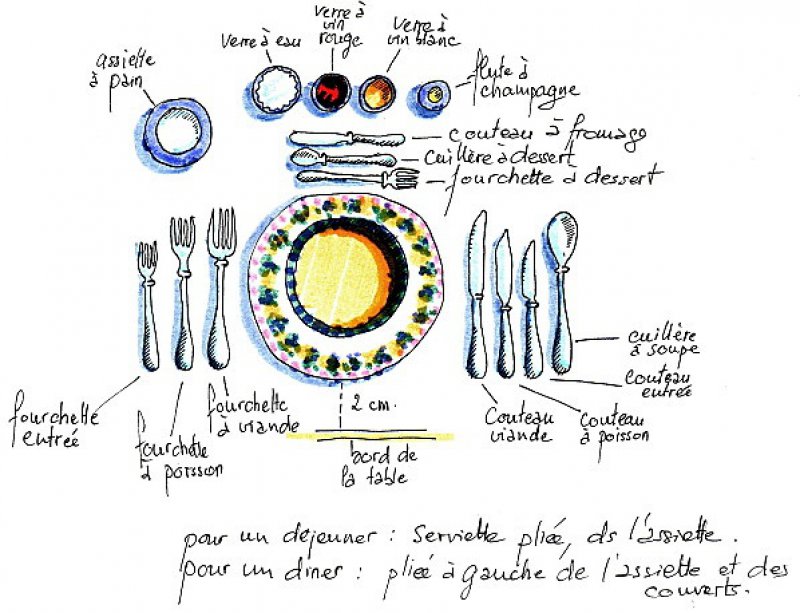 assiette
à pain
verre à eau
verre à
vin
rouge
verre à
vin blanc
flute à
champagne
couteau à fromage
cuillère à dessert
fourchette à dessert
cuillère
à soupe
couteau
entrée
fourchette
entrée
fourchette
à poisson
fourchette
à viande
2 cm.
bord de
la table
couteau
viande
couteau
à poisson
pour un déjeuner : Serviette pliée, ds l'assiette.
pour un diner : pliée à gauche de l'assiette et des
couverts.